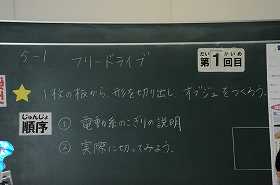 5-1 フリードライブ
だい 1 かいめ
第1回目
1枚の板から、形を切り出し オブジェをつくろう。
じゅんじょ
順序
① 電動糸のこぎりの説明
② 実際に切ってみよう。